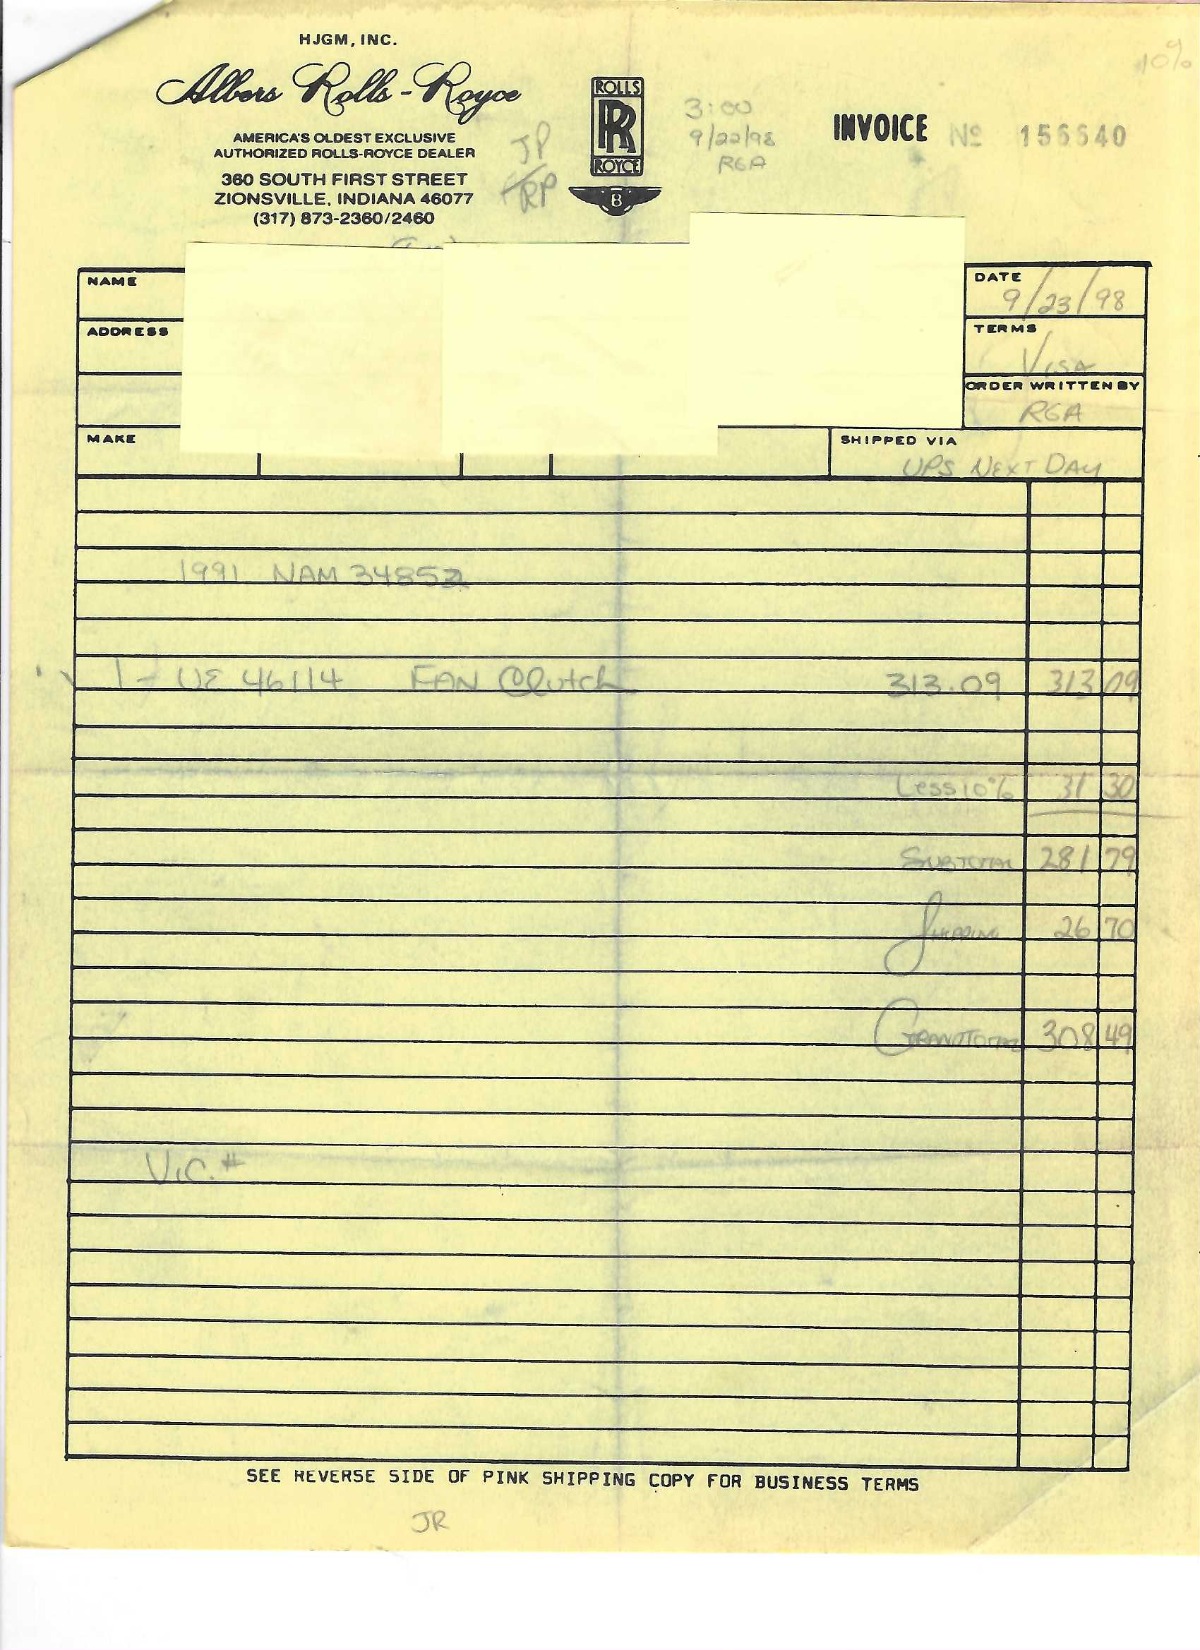 10%
HJGM, INC.
Albers Rolls-Royce
AMERICA'S OLDEST EXCLUSIVE
AUTHORIZED ROLLS-ROYCE DEALER
360 SOUTH FIRST STREET
ZIONSVILLE, INDIANA 46077
(317) 873-2360/2460
JP
RP
ROLLS
RR
ROYCE
B
3:00
9/22/98
RGA
INVOICE № 156640
NAME
ADDRESS
DATE
9/23/98
TERMS
VISA
ORDER WRITTEN BY
RGA
MAKE
SHIPPED VIA
UPS NEXT DAY
1991 NAM 34852
1 - UE 46114 FAN Clutch 313.09 313 09
Less 10% 31 30
SUBTOTAL 281 79
SHIPPING 26 70
GRANDTOTAL 308 49
V.C. #
SEE REVERSE SIDE OF PINK SHIPPING COPY FOR BUSINESS TERMS
JR